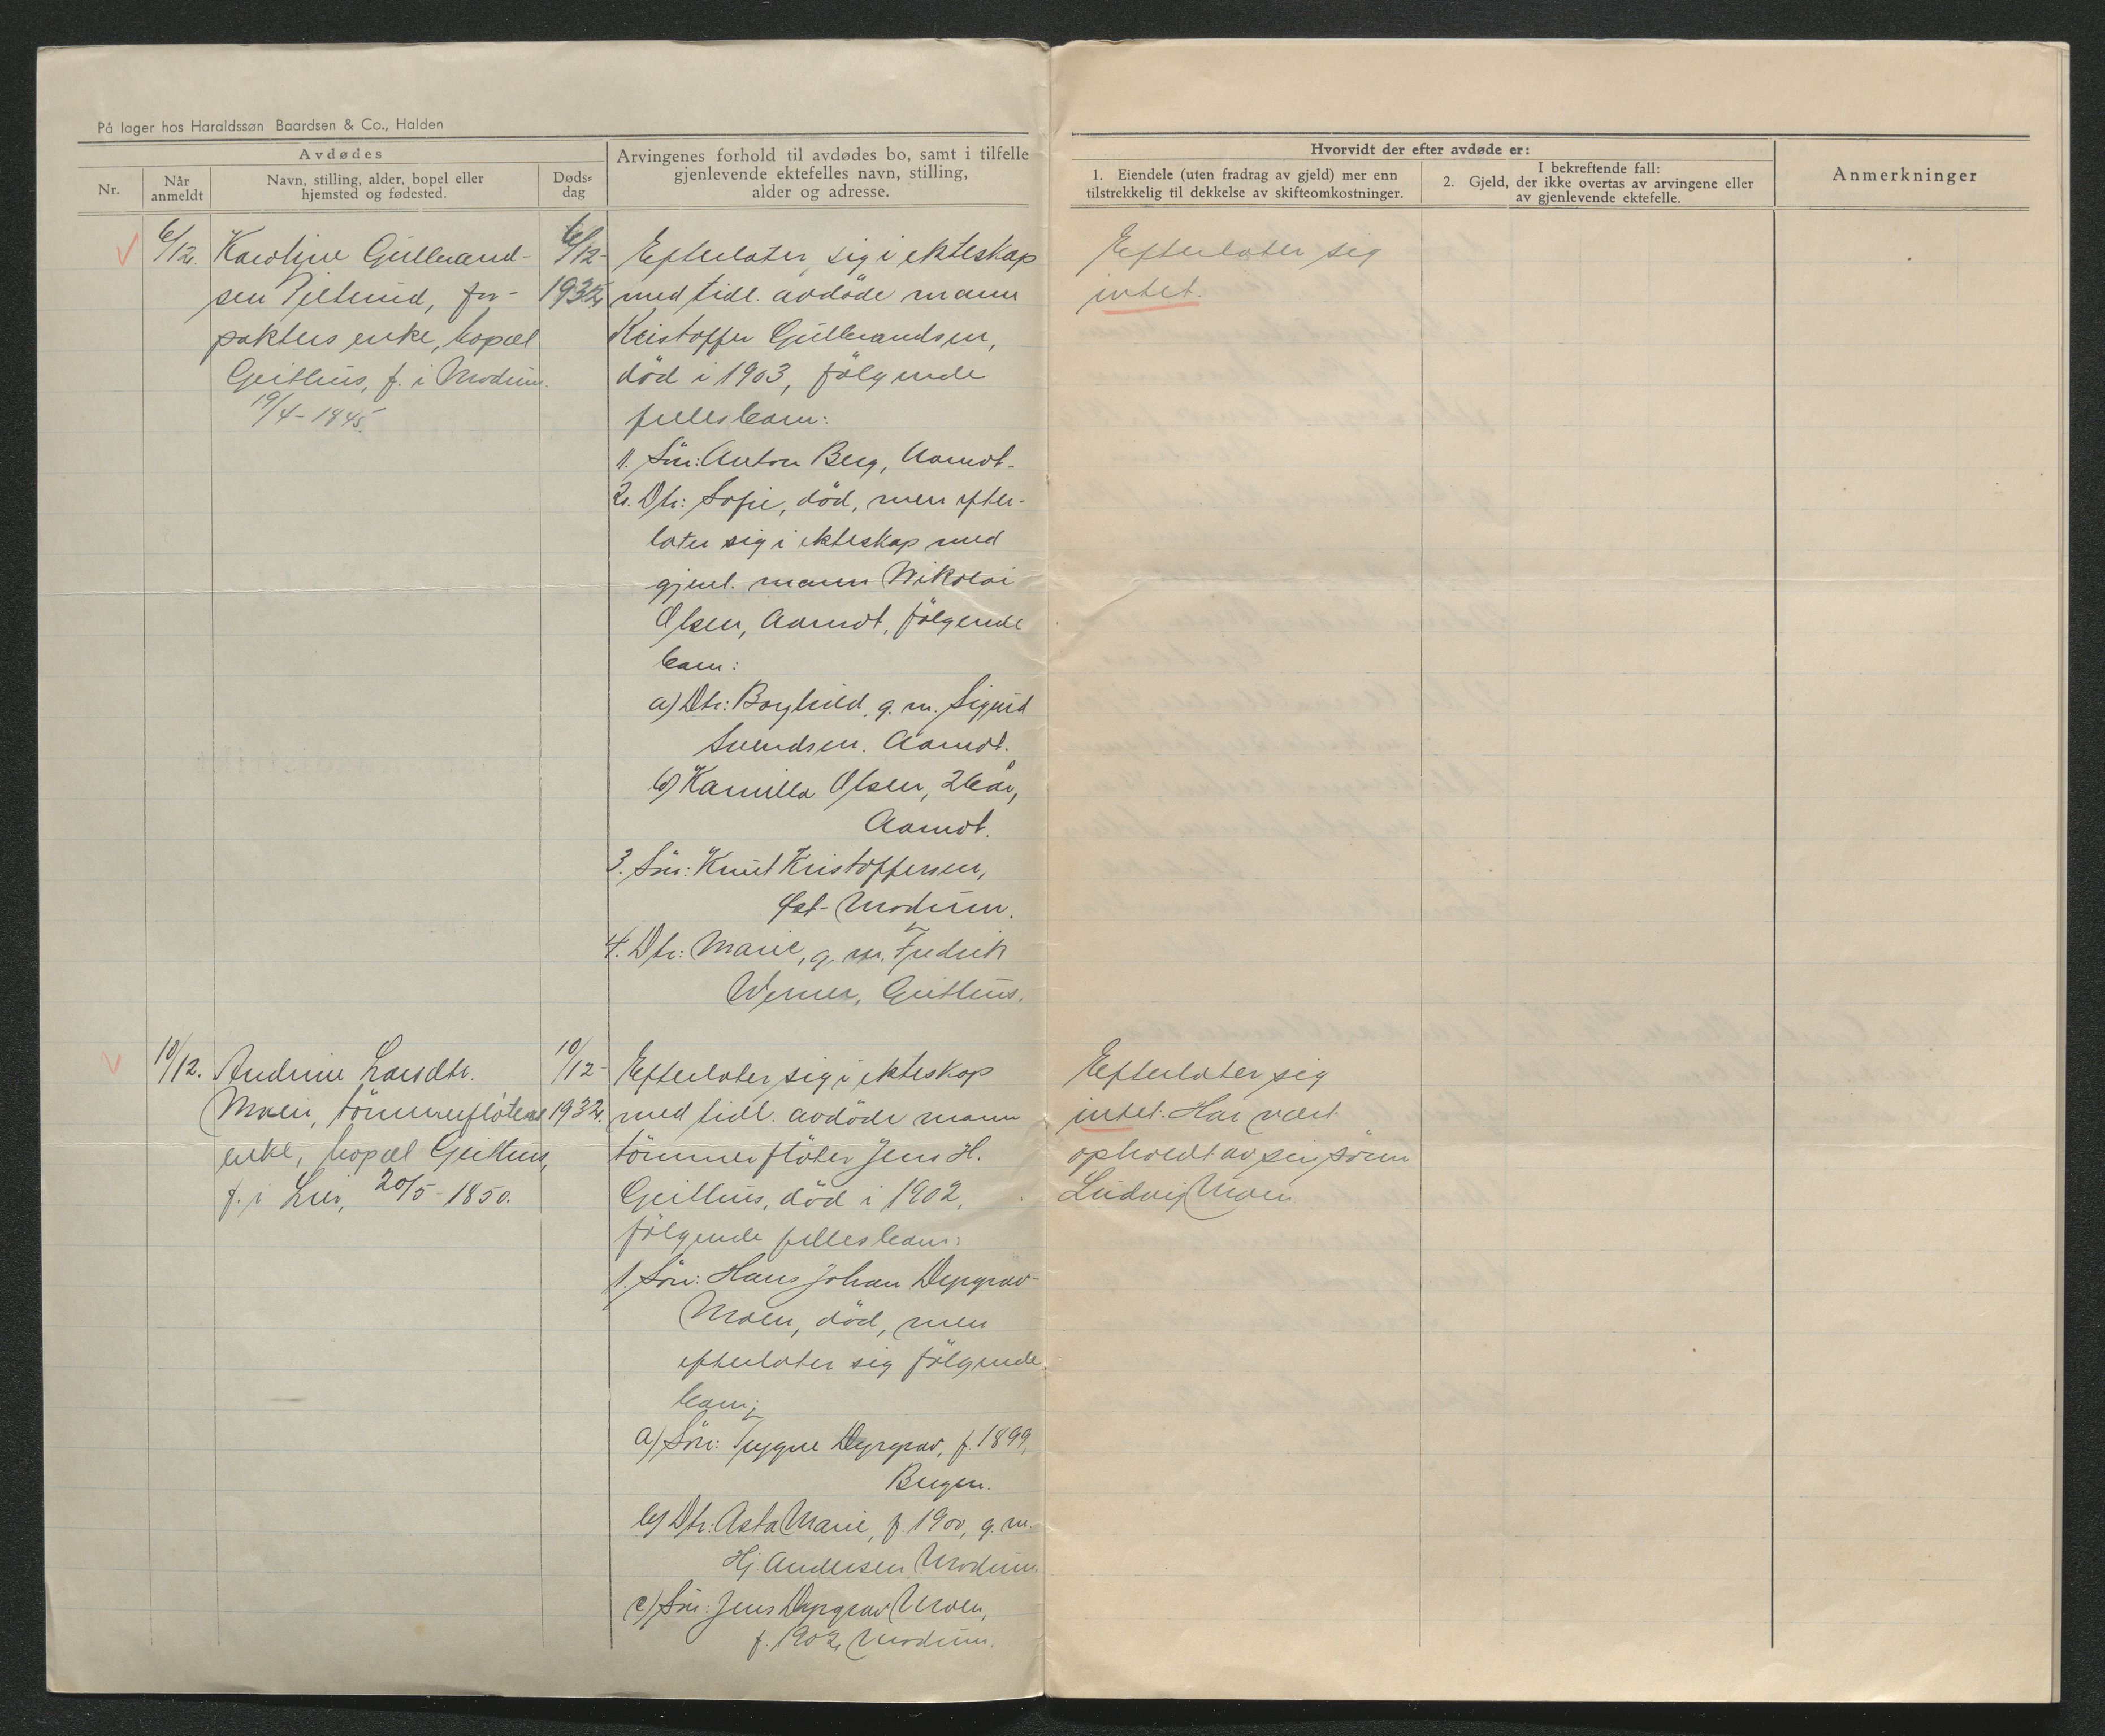 På lager hos Haraldssøn Baardsen & Co., Halden
Avdødes
Nr.
Når
anmeldt
Navn, stilling, alder, bopel eller
hjemsted og fødested.
Døds-
dag
Arvingenes forhold til avdødes bo, samt i tilfelle
gjenlevende ektefelles navn, stilling,
alder og adresse.
Hvorvidt der efter avdøde er:
1. Eiendele (uten fradrag av gjeld) mer enn
tilstrekkelig til dekkelse av skifteomkostninger.
I bekreftende fall:
2. Gjeld, der ikke overtas av arvingene eller
av gjenlevende ektefelle.
Anmerkninger
6/12.
Karoline Gulbrand-
sen, for-
pakters enke, bopæl
Geithus, f. i Modum.
19/4-1845.
6/12-
1932
Efterlater sig i ekteskap
med tidl. avdöde mann
Kristoffer Gulbrandsen,
död i 1903, fölgende
fellesbarn:
1. Sön: Anton Berg, Aamot.
2. Dtr: Sofie, död, men efter-
later sig i ekteskap med
gjenl. mann Nikolai
Olsen, Aamot, fölgende
barn:
a) Dtr: Borghild, g. m. Sigurd
Svendsen. Aamot.
b) Kamilla Olsen, 26 år,
Aamot.
3. Sön: Knut Kristoffersen,
Øst-Modum.
4. Dtr: Marie, g. m. Fredrik
Werner, Geithus.
Efterlater sig
intet.
10/12.
Andrine Larsdtr.
Moen, tömmerflöters
enke, bopæl Geithus,
f. i Lier, 20/5-1850.
10/12-
1932.
Efterlater sig i ekteskap
med tidl. avdöde mann
tömmerflöter Jens H.
Geithus, död i 1902,
fölgende fellesbarn:
1. Sön: Hans Johan Dyrgrav-
Moen, död, men
efterlater sig fölgende
barn:
a) Sön: Trygve Dyrgrav, f. 1899,
Bergen.
b) Dtr: Asta Marie, f. 1900, g. m.
Hj. Andersen, Modum.
c) Sön: Jens Dyrgrav Moen,
f. 1902, Modum.
Efterlater sig
intet. Har vært
opholdt av sin sönn
Ludvig Moen